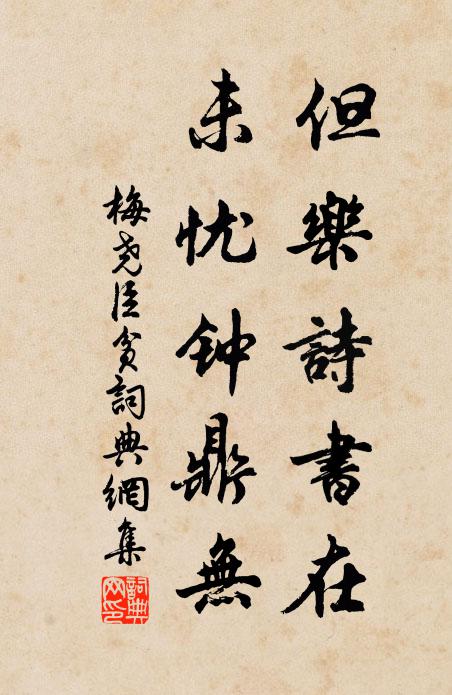 但樂詩書在
未忧钟鼎無
梅尧臣贫詞典網集
詞典
网印